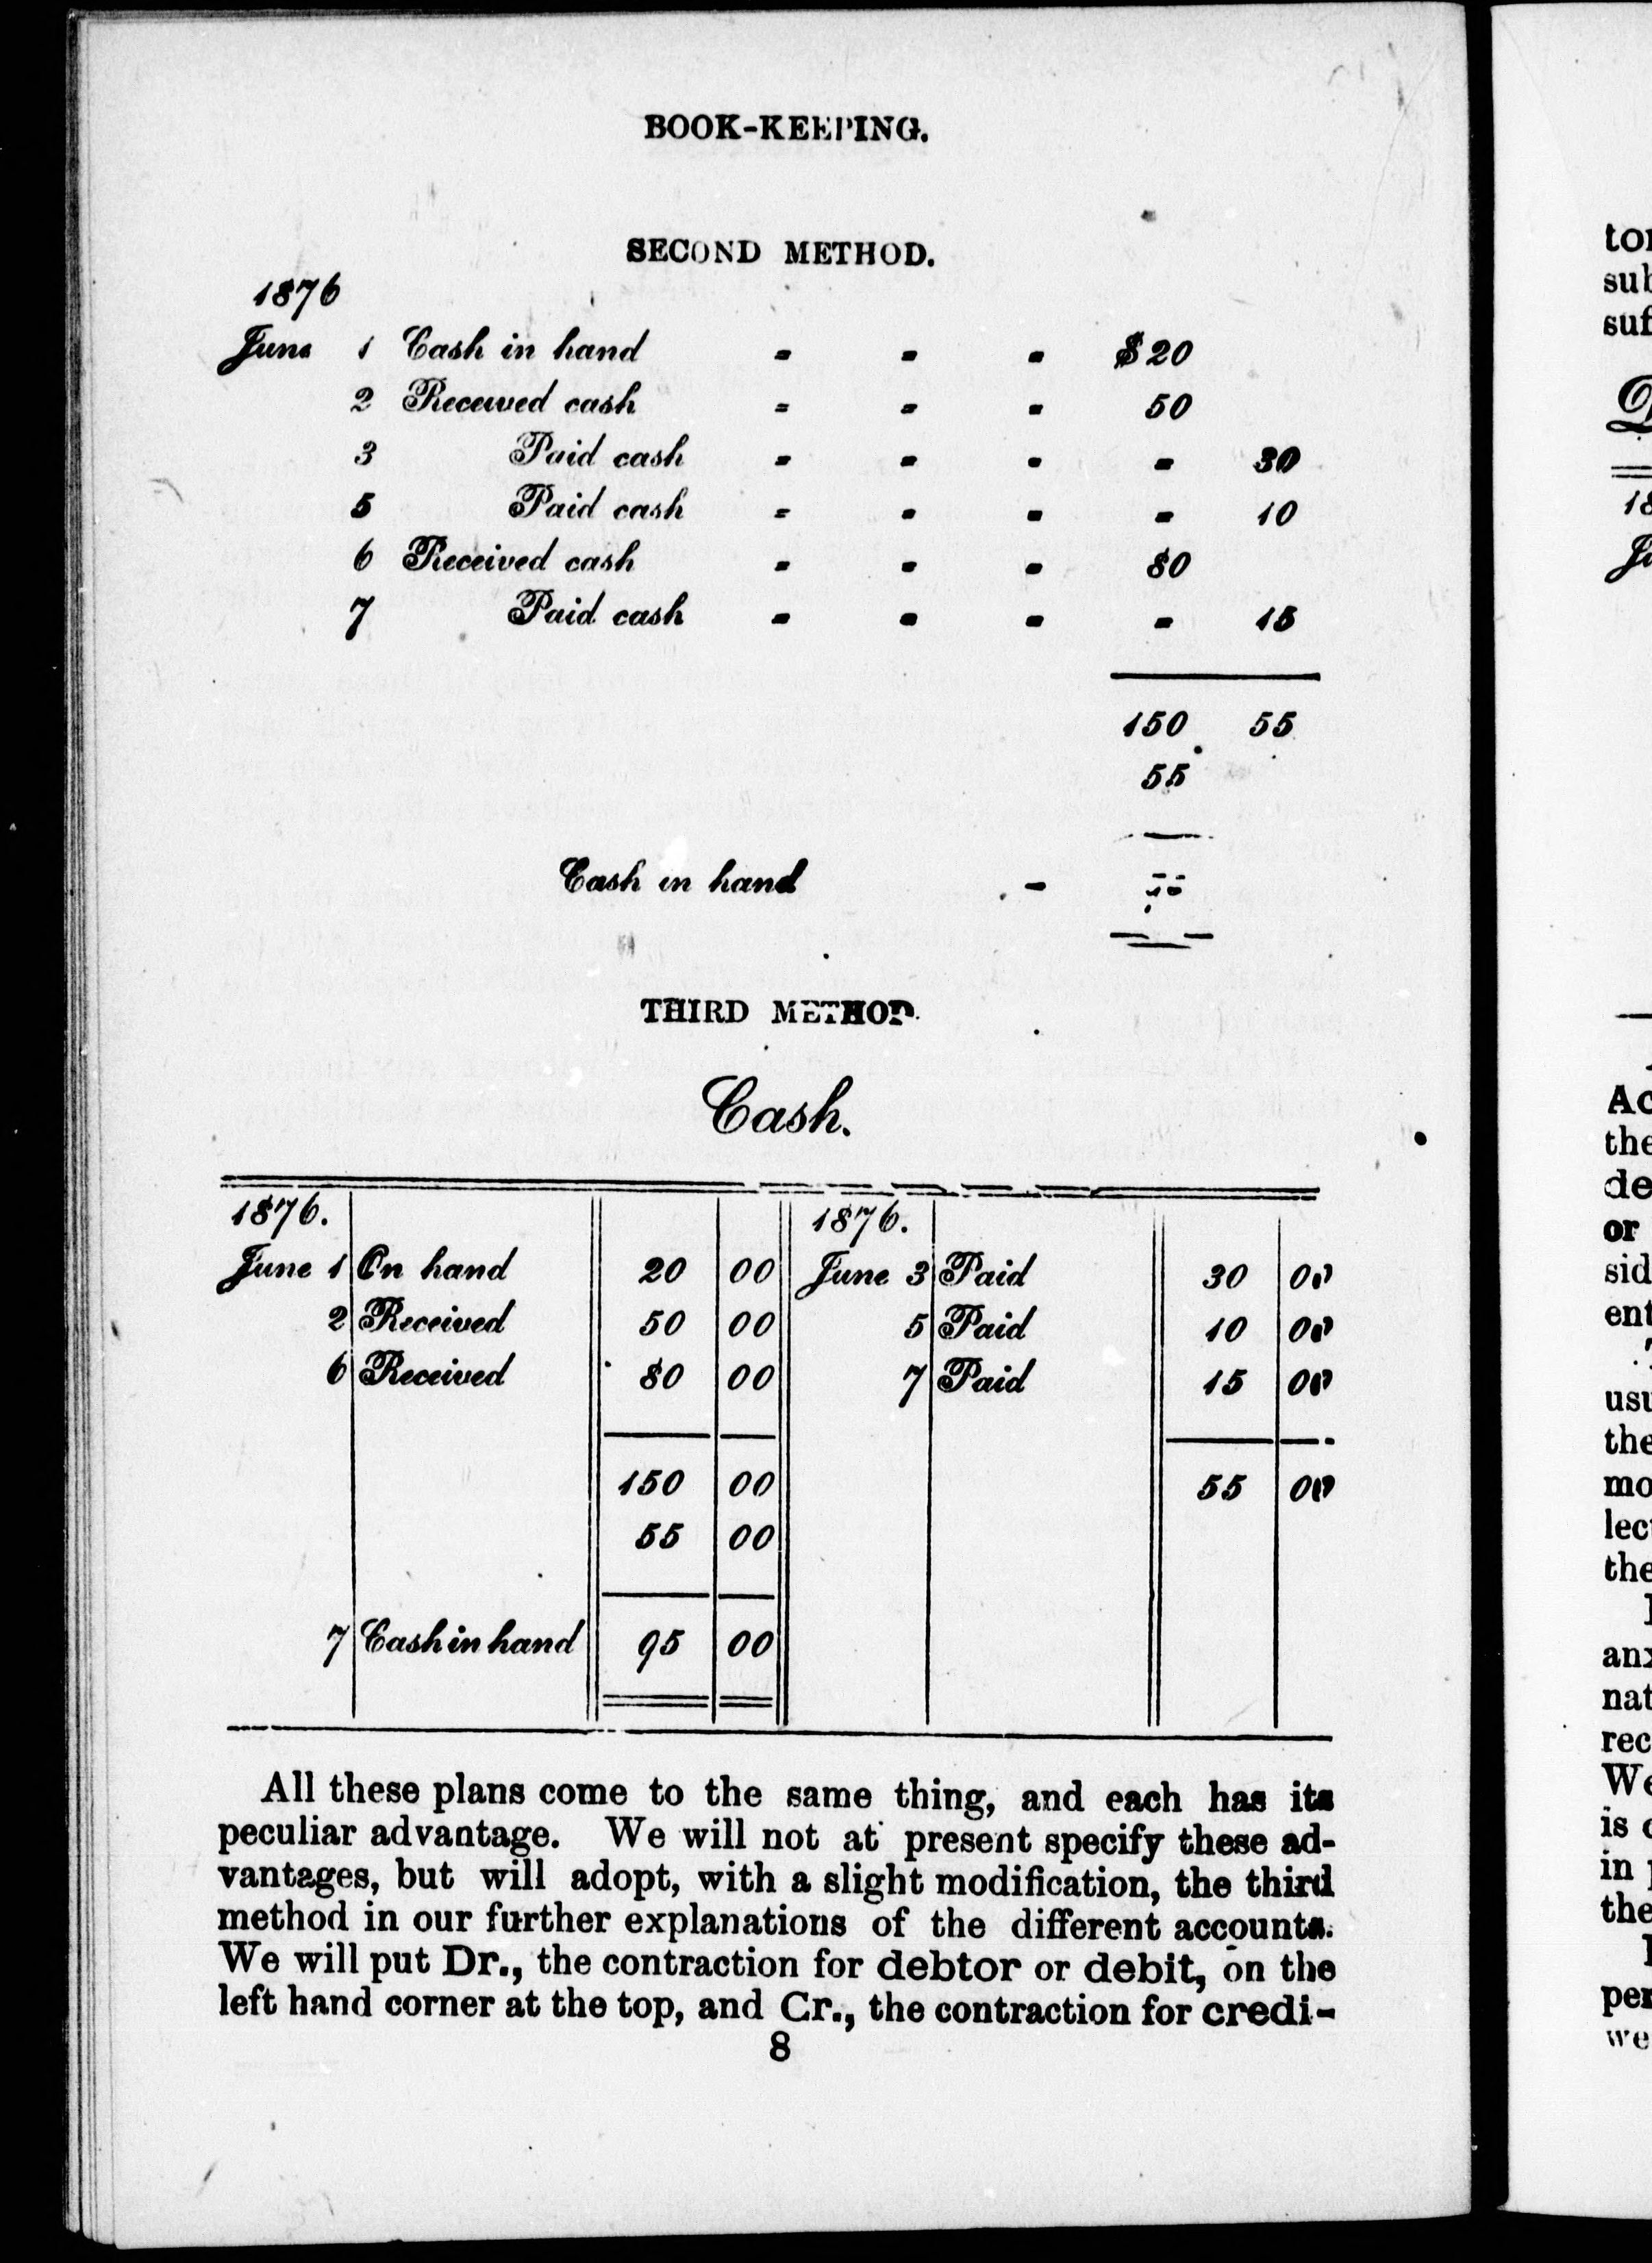 BOOK-KEEPING.
SECOND METHOD.
1876
June 1 Cash in hand - - - $20
2 Received cash - - - 50
3 Paid cash - - - - 30
5 Paid cash - - - - 10
6 Received cash - - - 80
7 Paid cash - - - - 15
150 55
55
Cash in hand -
THIRD METHOD.
Cash.
1876. 1876.
June 1 On hand 20 00 June 3 Paid 30 00
2 Received 50 00 5 Paid 10 00
6 Received 80 00 7 Paid 15 00
150 00 55 00
55 00
7 Cash in hand 95 00
All these plans come to the same thing, and each has its
peculiar advantage. We will not at present specify these ad-
vantages, but will adopt, with a slight modification, the third
method in our further explanations of the different accounts.
We will put Dr., the contraction for debtor or debit, on the
left hand corner at the top, and Cr., the contraction for credi-
8